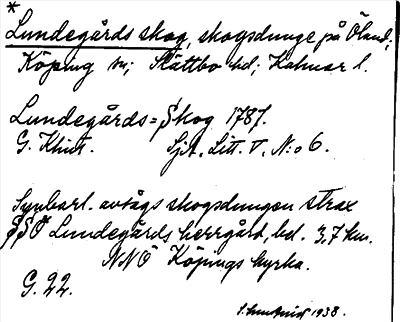 *
Lundegårds skog, skogsdunge på Öland;
Köping sn; Slättbo hd; Kalmar l.
Lundegårds=Skog 1787.
G. Khut. Sjöt. Litt. V, N:o 6.
Synbarl. avtågs skogsdungen strax
SSO Lundegårds herrgård, bel. 3,7 km.
NNO Köpings kyrka.
G. 22.
S. Lundqvist 1938.